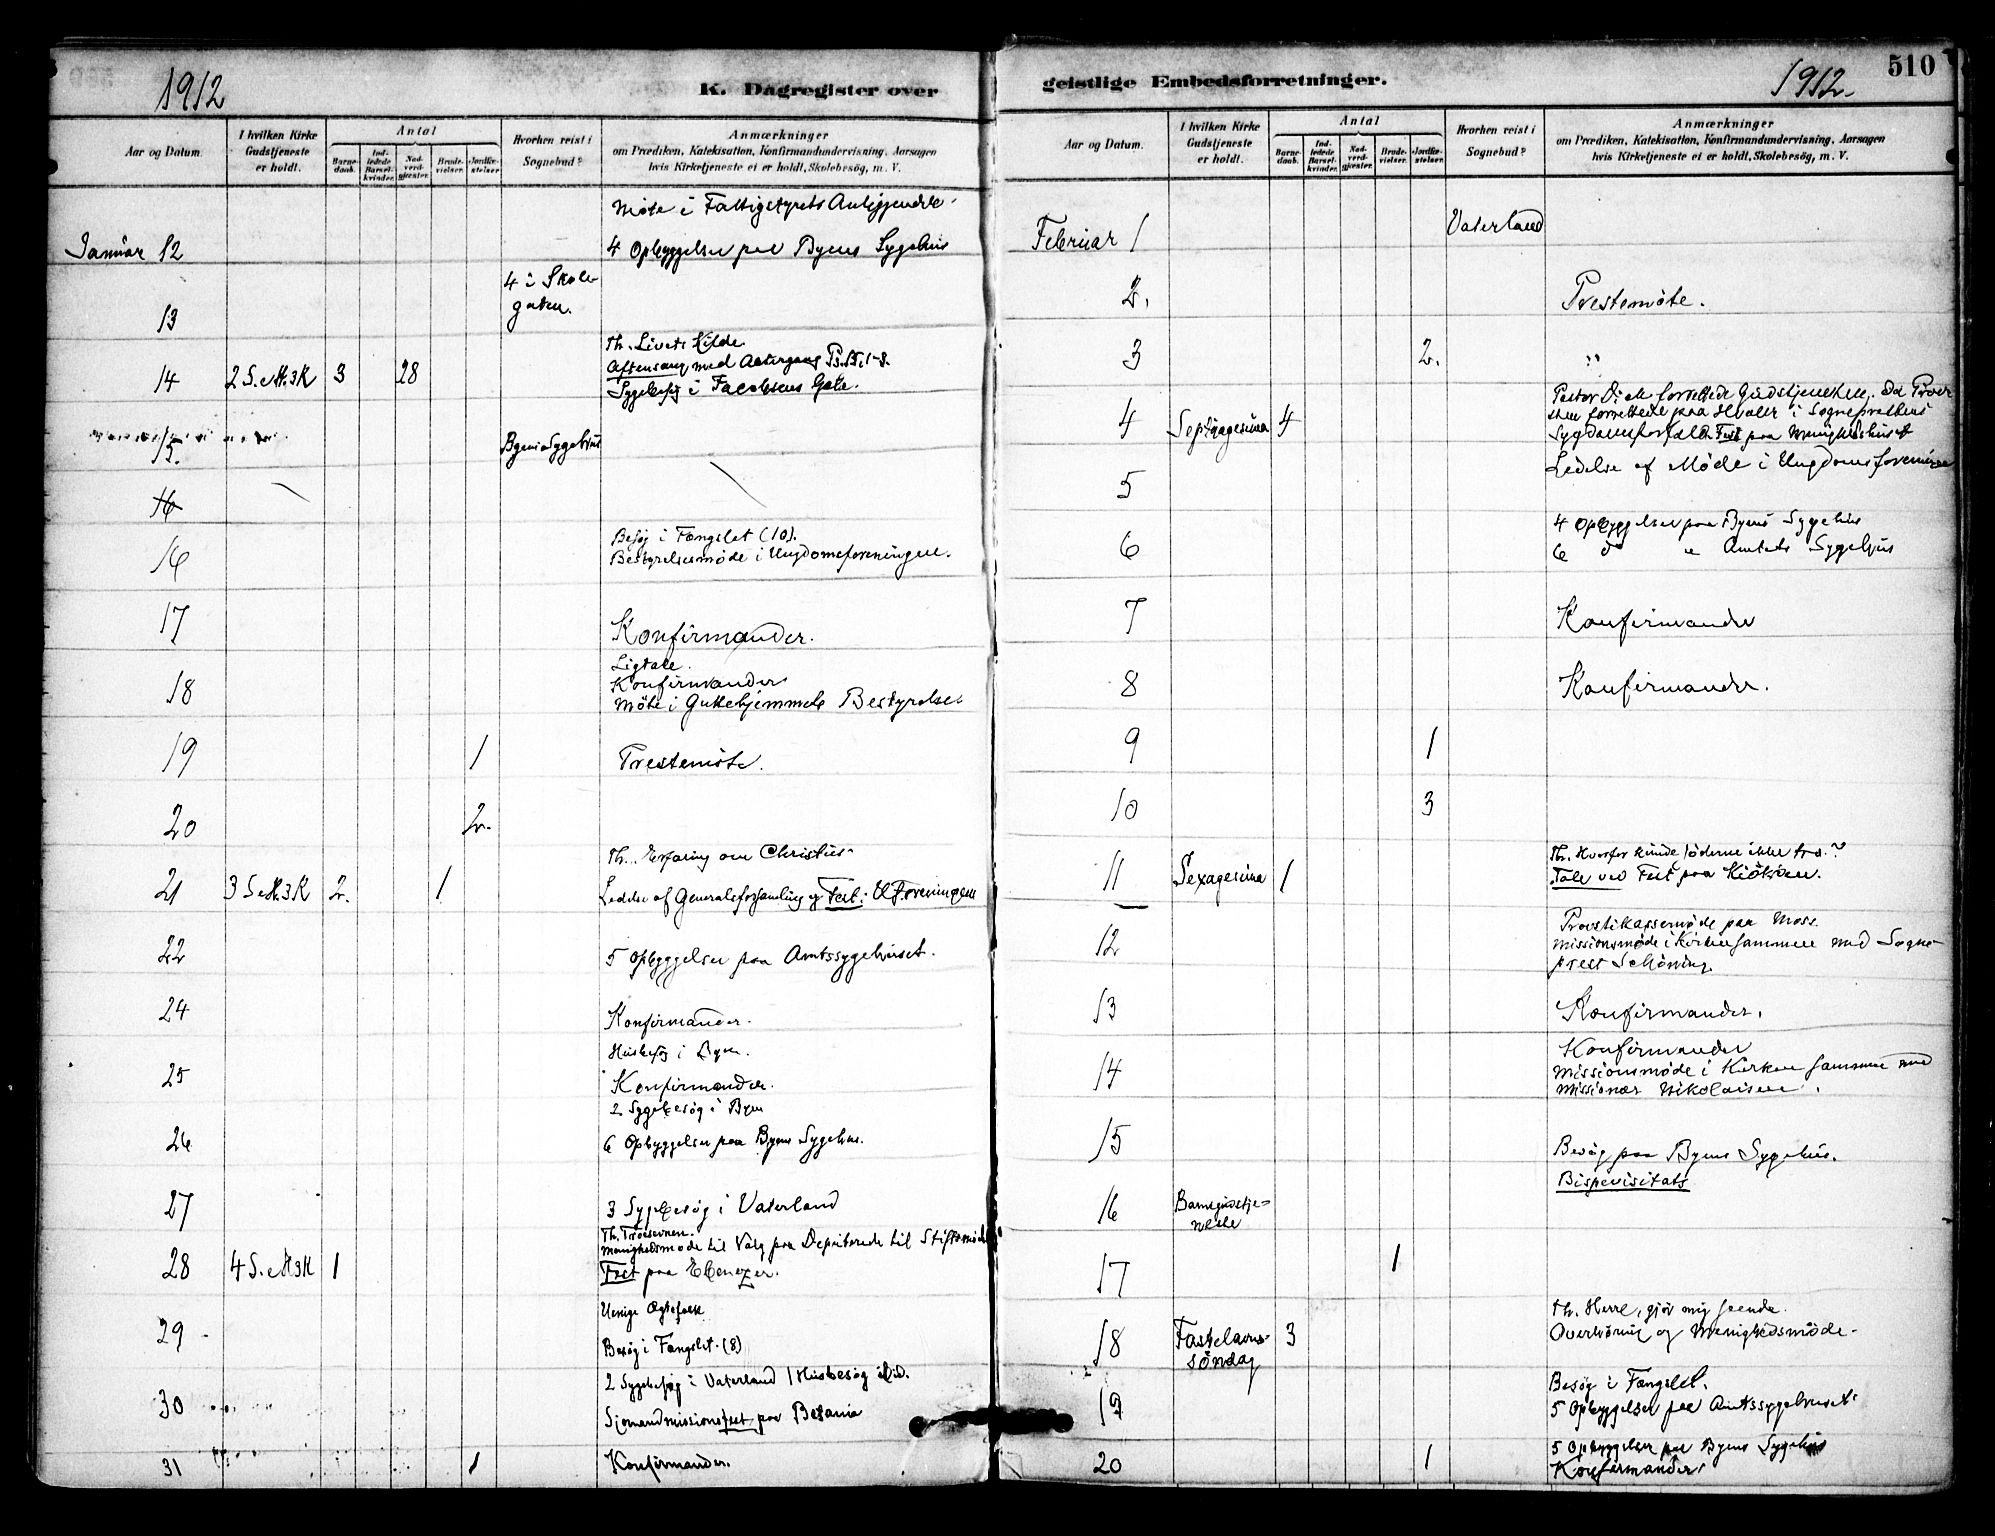 1912
K. Dagregister over
Aar og Datum.
I hvilken Kirke Gudstjeneste er holdt.
Antal
Barne-daab.
Ind-ledede Barsel-kvinder.
Nad-verd-gjester.
Brude-vielser.
Jordfæ-stelser.
Hvorhen reist i Sognebud?
Anmærkninger
om Prædiken, Katekisation, Konfirmandundervisning, Aarsagen
hvis Kirketjeneste ei er holdt, Skolebesøg, m. V.
Møte i Fattigstyrets
Januar 12 4 Opbyggelser paa Byens Sygehus
13 4 i Skole-
gaten.
Th. Livets Kilde
14 2 S. e. H. 3 K 3 28 Aftensang med Altergang Ps. 15, 1-8.
Sygebesøg i Jacobsens Gate.
15. Byens Sygehus
16
16 Besøg i Fængslet (10).
Bestyrelsesmøde i Ungdomsforeningen.
17 Konfirmander.
Ligtale.
18 Konfirmander
Møte i Guttehjemmets Bestyrelse
19 1 Prestemøte.
20 2.
Th. Erfaring om Christus
21 3 S. e. H. 3 K 2. 1 Ledelse af Generalforsamling og Fest i U. Foreningen
22 5 Opbyggelser paa Amtssygehuset.
24 Konfirmander.
Husbesøg i Byen.
25 Konfirmander.
2 Sygebesøg i Byen
26 6 Opbyggelser paa Byens Sygehus.
27 3 Sygebesøg i Vaterland
Th. Troesevnen.
Menighedsmøde til Valg paa Deputerede til Stiftsmøde
28 4 S. e. H. 3 K 1 Fest paa Ebenezer.
Uenige Ægtefolk
29 Besøg i Fængslet. (8)
2 Sygebesøg i Vaterland 1 Husbesøg ibid.
30 Sjømandsmissionsfest paa Betania
31 1 Konfirmander.
510
1912.
geistlige Embedsforretninger.
Aar og Datum.
I hvilken Kirke Gudstjeneste er holdt.
Antal
Barne-daab.
Ind-ledede Barsel-kvinder.
Nad-verd-gjester.
Brude-vielser.
Jordfæ-stelser.
Hvorhen reist i Sognebud?
Anmærkninger
om Prædiken, Katekisation, Konfirmandundervisning, Aarsagen
hvis Kirketjeneste ei er holdt, Skolebesøg, m. V.
Februar 1 Vaterland
2. Prestemøte.
3 2. "
Pastor forrettede Gudstjenesten. Da Prov
sten forrettede paa Hvaler i Sogneprestens
4 Septuagesima 4 Sygdomsforfald. Fest paa Menighedshuset
5 Ledelse af Møde i Ungdomsforeningen
4 Opbyggelser paa Byens Sygehus
6 6 do " Amtets Sygehus
7 Konfirmander
8 Konfirmander.
9 1
10 3
Th. Hvorfor kunde Jøderne ikke tro.?
11 Sexagesima 1 Tale ved Fest paa Kiökøen.
Provstikassemøde paa Moss.
12 Missionsmøde i Kirken sammen med Sogne-
prest Schöning
13 Konfirmander.
Konfirmander
14 Missionsmøde i Kirken sammen med
Missionær Nikolaisen.
15 Besøg paa Byens Sygehus.
Bispevisitats
16 Barnegudstje-
neste
17 1
Th. Herre, gjør mig seende.
18 Fastelavns-
søndag 3 Overhøring og Menighedsmøde.
Besøg i Fængslet.
19 5 Opbyggelser paa Amtssygehuset
5 Opbyggelser paa Byens Sygehus
20 1 Konfirmander